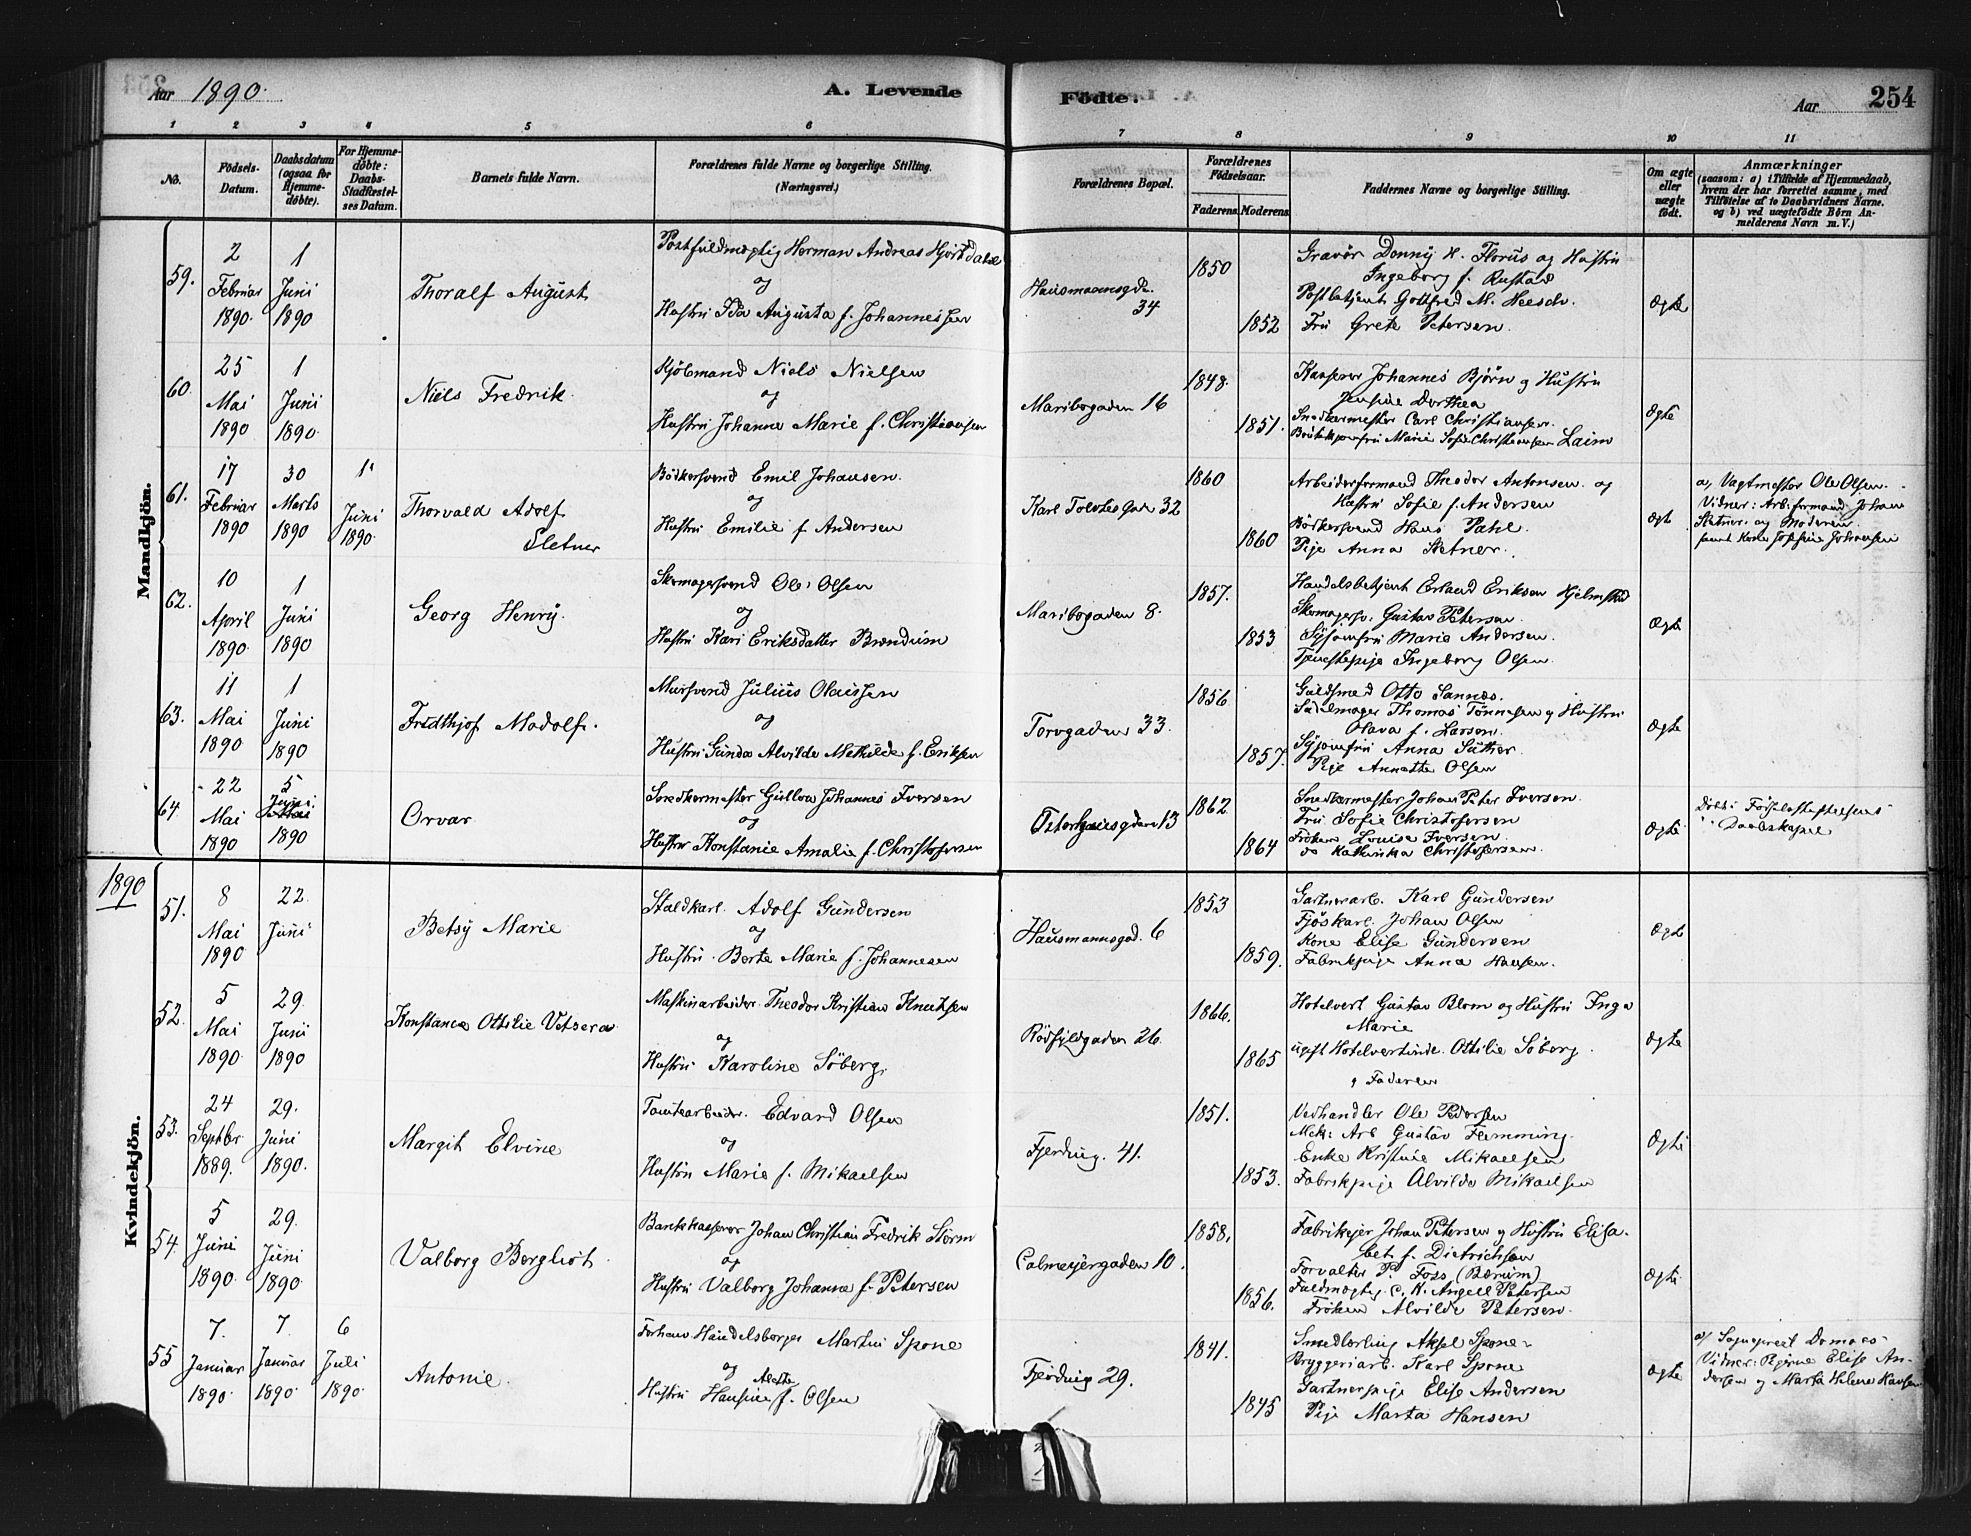 Aar 1890.
A. Levende Födte.
Aar 254
1 2 3 4 5 6 7 8 9 10 11
No.
Födsels-Datum.
Daabsdatum (ogsaa for Hjemmedöbte).
For Hjemmedöbte: Daabs-Stadfæstelses Datum.
Barnets fulde Navn.
Forældrenes fulde Navne og borgerlige Stilling. (Næringsvei.)
Forældrenes Bopæl.
Forældrenes Födselsaar.
Faderens. Moderens.
Faddernes Navne og borgerlige Stilling.
Om ægte eller uægte födt.
Anmærkninger
(saasom: a) i Tilfælde af Hjemmedaab,
hvem der har forrettet samme, med
Tilföielse af to Daabsvidners Navne.
og b) ved uægtefödte Börn Anmelderens Navn m. V.)
Mandkjön.
59.
2 Februar 1890.
1 Juni 1890
Thoralf August
Postfuldmægtig Herman Andreas Hjortdahl
og
Hustru Ida Augusta f. Johannessen
Hausmannsgde. 34
1850
1852
Gravör Donny H. Florus og Hustru
Ingeborg f. Rustad
Postbetjent Gottfred M. Heesch.
Fru Grete Petersen.
Ægte
60.
25 Mai 1890
1 Juni 1890.
Niels Fredrik.
Kjöbmand Niels Nielsen
og
Hustru Johanne Marie f. Christiansen
Maribogaden 16
1848.
1851.
Kasserer Johannes Bjørn og Hustru
Jensine Dorthea
Snedkermester Carl Christiansen.
Butikjomfru Marie Sofie Christiansen Laim
Ægte
61.
17 Februar 1890
30 Marts 1890
1 Juni 1890.
Thorvald Adolf
Sletner
Bödkersvend Emil Johansen.
og
Hustru Emilie f. Andersen
Karl Tolstes Gade 32
1860
1860
Arbeiderformand Theodor Antonsen og
Hustru Sofie f. Andersen
Bödkersvend Hans Pahl.
Pige Anna Sletner.
Ægte
a, Vagtmester Ole Olsen.
Vidner: Arb.formand Johan
Sletner og Moderen
samt Kone Josefine Johansen
62.
10 April 1890.
1 Juni 1890
Georg Henry.
Skomagersvend Ole Olsen
og
Hustru Kari Eriksdatter Brændum
Maribogaden 8.
1857.
1853
Handelsbetjent Erland Eriksen Hjelmstad
Skomagersv. Gustav Petersen
Syjomfru Marie Andersen.
Tjenestepige Ingeborg Olsen.
Ægte
63.
11 Mai 1890
1 Juni 1890
Fridthjof Madolf.
Mursvend Julius Olaussen
og
Hustru Gunda Alvilde Mathilde f. Eriksen
Torvgaden 33.
1856
1857.
Guldsmed Otto Sannes.
Sadelmager Thomas Tönnesen og Hustru
Olava f. Larsen.
Syjomfru Anna Sæther.
Pige Annette Olsen
Ægte
64.
22 Mai 1890
5 Juni 1890
Orvar
Snedkermester Gullow Johannes Iversen
og
Hustru Konstance Amalie f. Christofersen
Osterhausgden 13
1862.
1864
Snedkermester Johan Peter Iversen.
Fru Sofie Christofersen
Fröken Louise Iversen.
do Kathinka Christofersen.
Ægte
Döbt i Fødselsstiftelsens
Daabskapel
1890
Kvindekjön.
51.
8 Mai 1890
22. Juni
Betsy Marie
Staldkarl Adolf Gundersen
og
Hustru Berte Marie f. Johannesen
Hausmannsgad. 6
1853
1859.
Gartnerarb. Karl Gundersen
Fjöskarl Johan Olsen
Kone Elise Gundersen
Fabrikpige Anna Hansen.
Ægte
52.
5 Mai 1890.
29. Juni 1890
Konstance Ottilie Vetsera
Maskinarbeider Theodor Kristian Knutsen
og
Hustru Karoline Söberg.
Rödfyldgaden 26.
1866.
1865
Hotelvert Gustav Blom og Hustru Inga
Marie
ugift Hotelvertinde Ottilie Söberg.
og Faderen
Ægte
53.
24 Septbr 1889.
29. Juni 1890.
Margit Elvine
Tomtearbeider Edvard Olsen
og
Hustru Marie f. Mikaelsen
Fjerding. 41.
1851.
1853.
Vedhandler Ole Pedersen
Mek. Arb Gustav Flemming.
Enke Kristine Mikaelsen
Fabrikpige Alvilde Mikaelsen
Ægte
54.
5 Juni 1890.
29. Juni 1890.
Valborg Bergliot
Bankkasserer Johan Christian Fredrik Storm
og
Hustru Valborg Johanne f. Petersen
Calmeyergaden 10.
1858.
1856.
Fabrikejer Johan Petersen og Hustru Elisabet f. Dietrichsen
Forvalter P. Foss (Bærum)
Fuldmægtig C. H. Angell Petersen
Fröken Alvilde Petersen.
Ægte
55
7. Januar 1890.
7. Januar 1890.
6 Juli 1890.
Antonie.
Forhenv Handelsborger Martin Spone
og
Hustru Hansine Aletta f. Olsen
Fjerding 29.
1841.
1845
Smedlærling Aksel Spone
Bryggeriarb. Karl Spone
Gartnerpige Elise Andersen
Pige Marta Hansen
Ægte
a) Sogneprest Domaas
Vidner: Pigerne Elise Andersen og Marta Helene Hansen